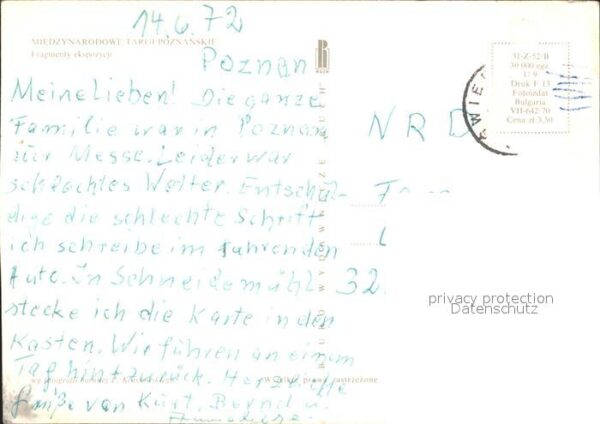 14.6.72
MIĘDZYNARODOWE TARGI POZNAŃSKIE
Fragmenty ekspozycji
Poznan
Meine Lieben! Die ganze
Familie war in Poznan
zur Messe. Leider war
schlechtes Wetter. Entschul-
dige die schlechte Schrift
ich schreibe im fahrenden
Auto. In Schneidemühl
stecke ich die Karte in den
Kasten. Wir führen an einem
Tag hin+zurück. Herzliche
Grüße von Kurt, Bernd u.
RUCH
31-Z-52/B
30 000 egz.
U-9
Druk F 13
Fotoizdat
Bulgaria
VII-642/70
Cena zł 3,50
KWIEC
N R D
32.
privacy protection
Datenschutz
Wszelkie prawa zastrzeżone